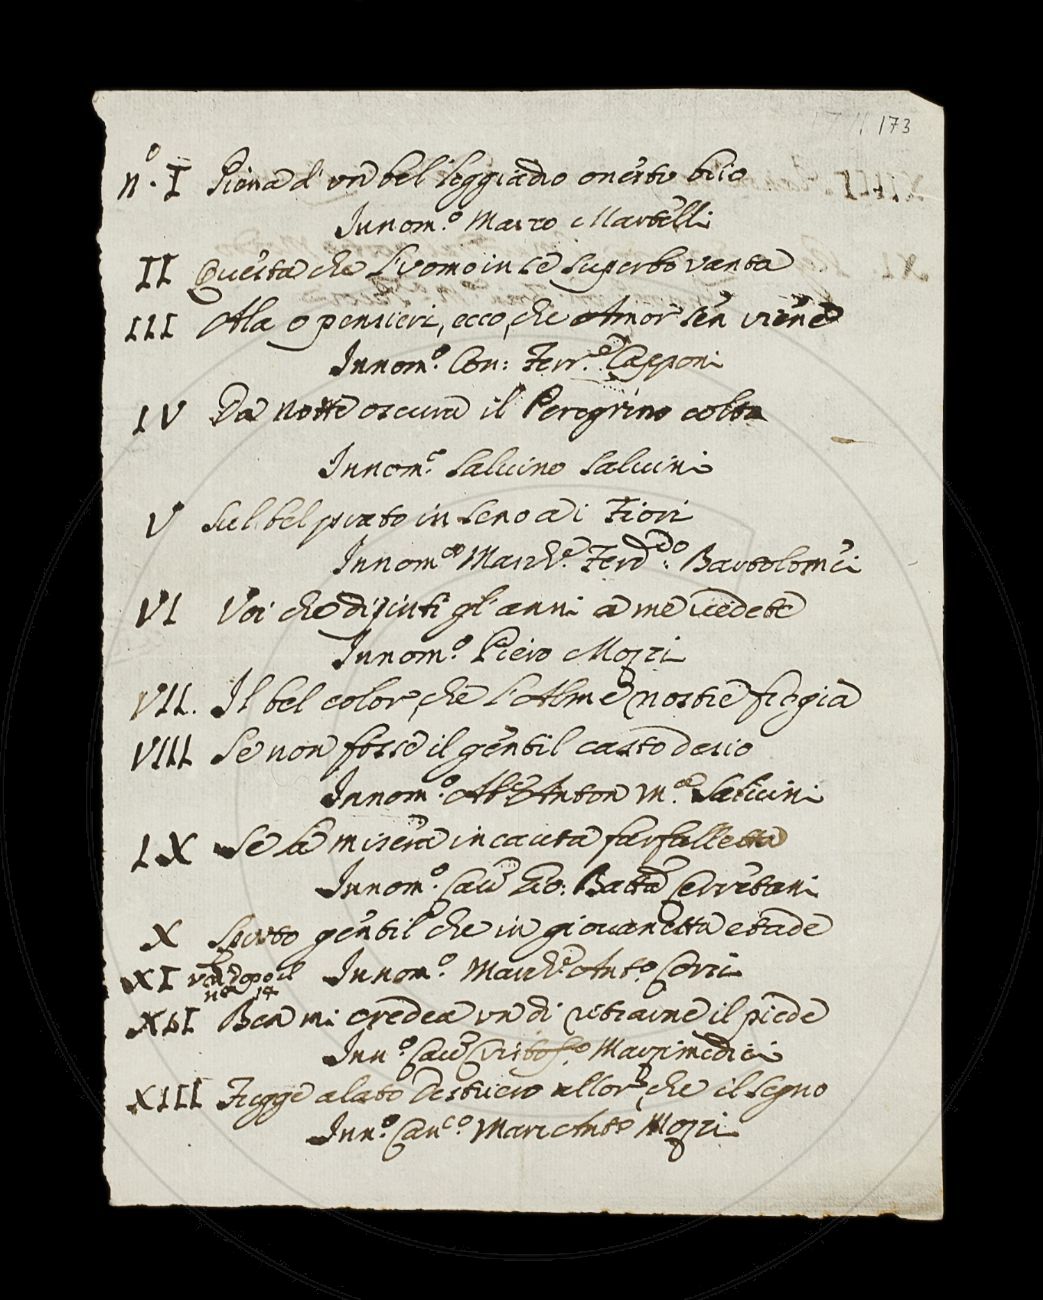 173
nº. I Piena d'un bel leggiadro onesto brio
Innom.º Marco Martelli
II Questa che l'uomo in se superbo vanta
III Ala o pensieri, ecco, che Amor sen viene
Innom.º Con: Ferr.º Capponi
IV Da notte oscura il Peregrino colto
Innom.º Salvino Salvini
V Sul bel prato in seno a i Fiori
Innom.º March.e Ferd.do: Bartolomei
VI Voi che dipinti gl'anni a me vedete
Innom.º Piero Mozzi
VII. Il bel color, che l'Alme nostre fregia
VIII Se non fosse il gentil casto desio
Innom.º Ab.e Anton M.a Salvini
IX Se la misera incauta farfalletta
Innom.º Cav. Gio: Batta Cerretani
X Spirto gentil che in giovanetta etade
XI va dopo il Innom.º March.e Ant.º Corsi
nº 14
XII Ben mi credea un di ritrarne il piede
Inn.º Cav. Cristof.º Marzimedici
XIII Fugge alato destriero allor, che il segno
Inn.º Can.co Marc Ant.º Mozzi